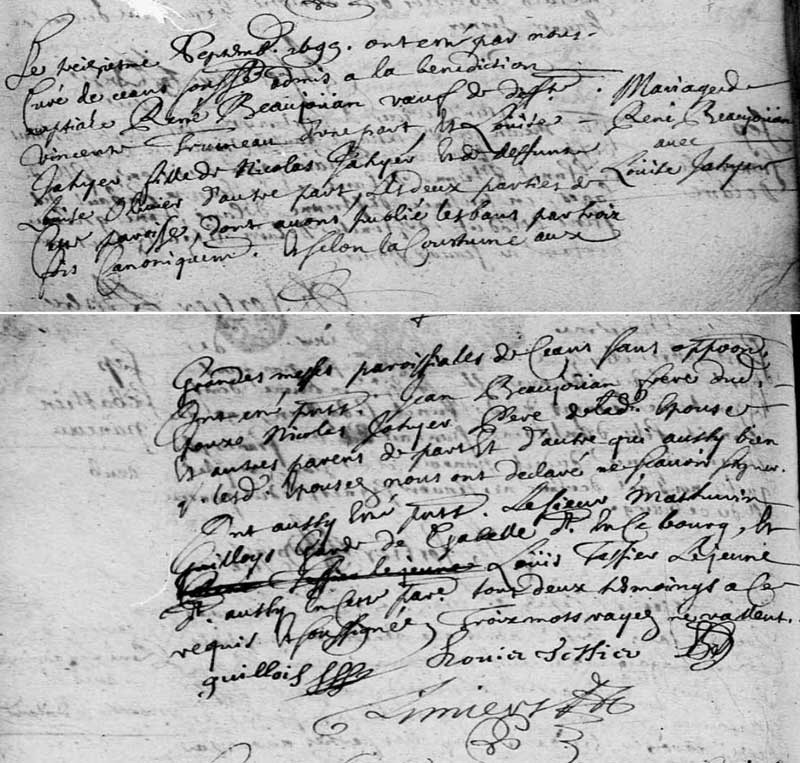 Le seiziesme Septemb. 1699. ont esté par nous
Curé de ceans soussé admis a la benediction
nuptiale René Beaujoüan vœuf de deffte
Vincente Bruineau d'une part Et Loüise
Jahyer fille de Nicolas Jahyer Et de deffunte
Louise Ollivier d'autre part, les deux parties de
Cette paroisse, dont avons publié les bans par trois
fois Canoniquemt. Et selon la Coustume aux
Mariage de
René Beaujoüan
avec
Loüise Jahyer
Grandes messes paroissiales de Ceans sans opposon.
Ont esté pnts. Jean Beaujoüan frere dud.
Epoux Nicolas Jahyer Pere de lad. Epouse
Et autres parens de part Et d'autre qui aussy bien
q. lesd. Epousez nous ont declaré ne scavoir signer.
Ont aussy Esté pnts. Le sieur Mathurin
Guilloys Garde de Gabelle dt. En Ce bourg, Et
Tessier le jeune Loüis Tessier Lejeune
dt. aussy En Cette parr. tout deux tesmoings a Ce
requis Et soussignés Trois mots rayez ne vallent.
guillois Louis Tessier
Limiers